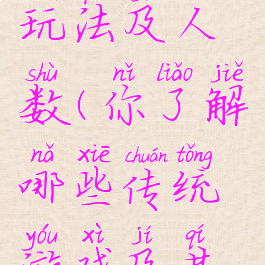 玩法及人
shù nǐ liǎo jiě
数(你了解
nǎ xiē chuán tǒng
哪些传统
yóu xì jí qí
游戏及其